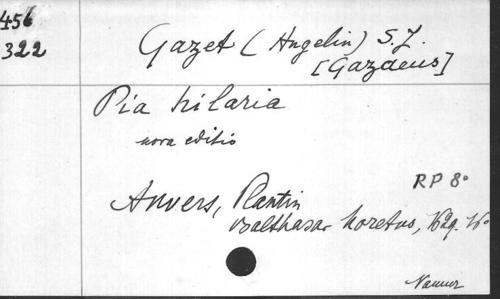 456
322
Gazet (Angelin) S.J.
[Gazaeus]
Pia hilaria
nova editio
RP 8°
Anvers, Plantin
Balthasar Moretus, 1629. 16°
Namur